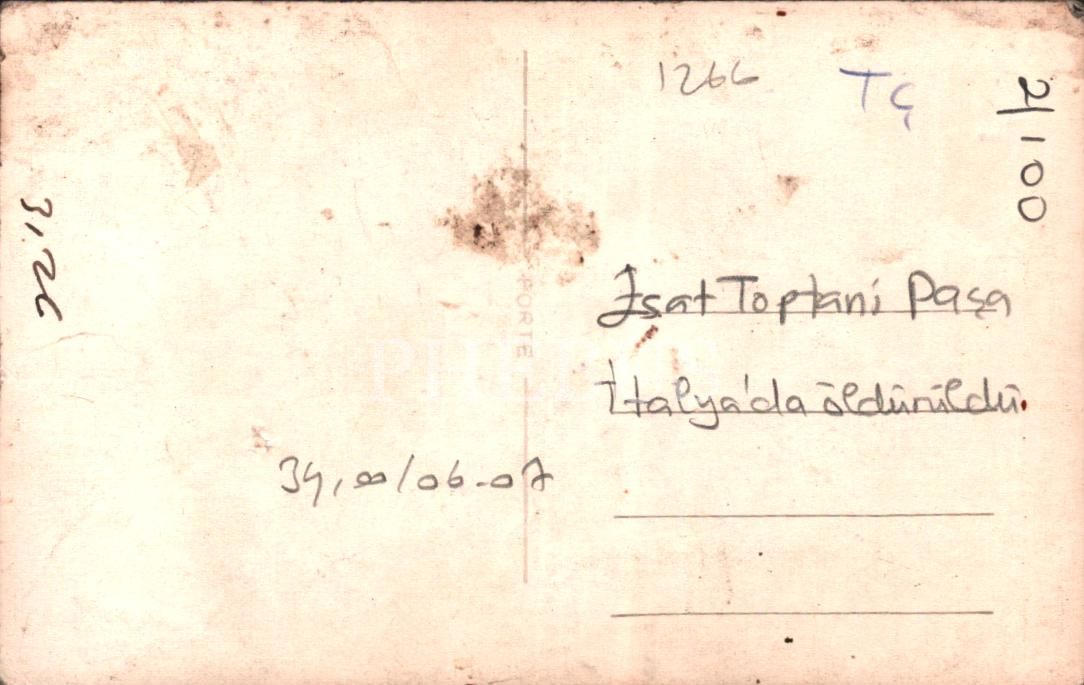 1266
TÇ
2/100
31,26
Esat Toptani Paşa
İtalya'da öldürüldü.
34,00/06-07
PORTE